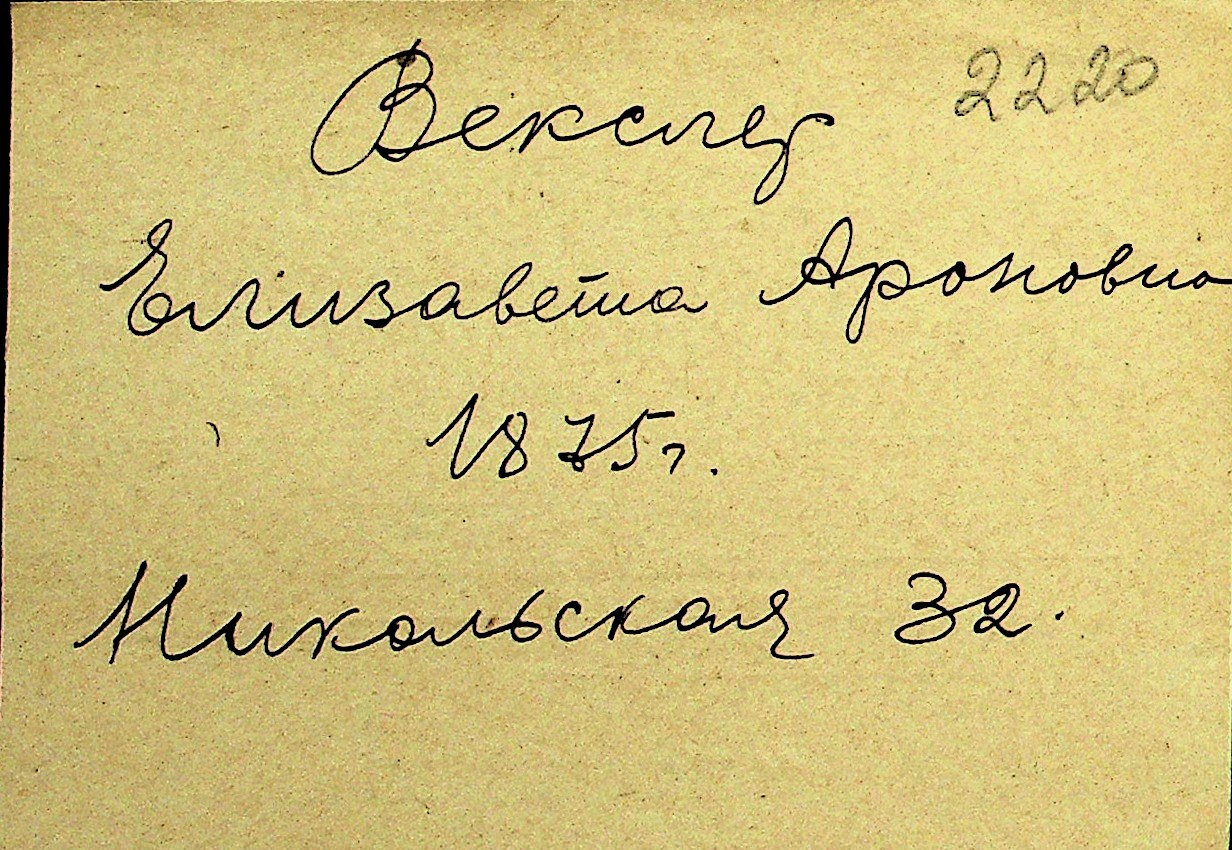 Векслер 2220
Елизавета Ароновна
1875г.
Никольская 32.